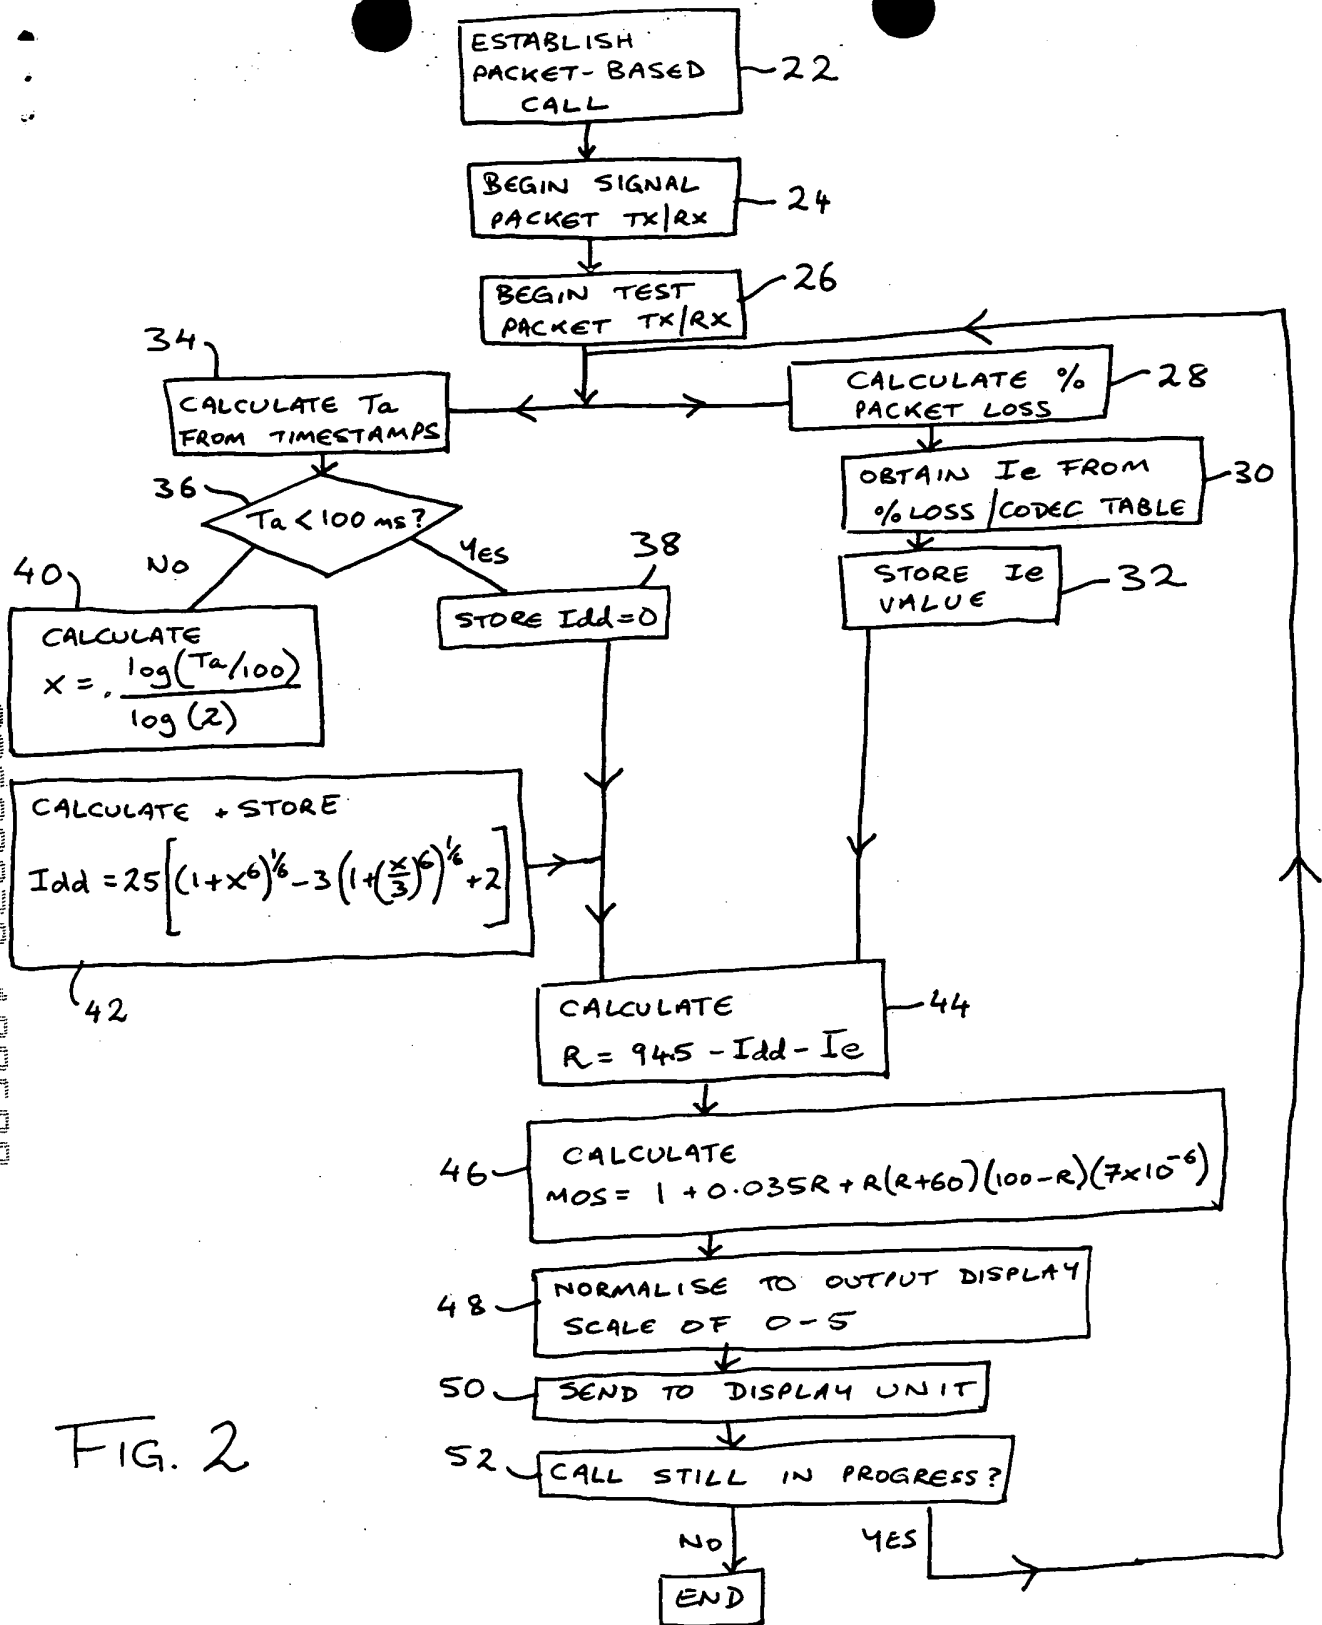 ESTABLISH
PACKET-BASED
CALL
22
BEGIN SIGNAL
PACKET TX/RX
24
BEGIN TEST
PACKET TX/RX
26
34
CALCULATE Ta
FROM TIMESTAMPS
CALCULATE %
PACKET LOSS
28
36
Ta < 100 ms?
OBTAIN Ie FROM
% LOSS / CODEC TABLE
30
NO
YES
40
CALCULATE
x = log(Ta/100)
log (2)
38
STORE Idd=0
STORE Ie
VALUE
32
CALCULATE + STORE
Idd = 25[(1+x^6)^1/6 - 3(1+(x/3)^6)^1/6 + 2]
42
CALCULATE
R = 94.5 - Idd - Ie
44
46
CALCULATE
MOS = 1 + 0.035R + R(R+60)(100-R)(7x10^-6)
48
NORMALISE TO OUTPUT DISPLAY
SCALE OF 0-5
50
SEND TO DISPLAY UNIT
52
CALL STILL IN PROGRESS?
NO
YES
END
FIG. 2